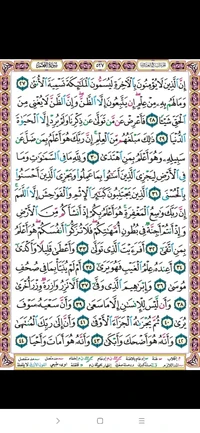 ٥٢٧
إِنَّ ٱلَّذِينَ لَا يُؤْمِنُونَ بِٱلْءَاخِرَةِ لَيُسَمُّونَ ٱلْمَلَٰٓئِكَةَ تَسْمِيَةَ ٱلْأُنثَىٰ ٢٧
وَمَا لَهُم بِهِۦ مِنْ عِلْمٍ إِن يَتَّبِعُونَ إِلَّا ٱلظَّنَّ وَإِنَّ ٱلظَّنَّ لَا يُغْنِى مِنَ
ٱلْحَقِّ شَيْـًٔا ٢٨ فَأَعْرِضْ عَن مَّن تَوَلَّىٰ عَن ذِكْرِنَا وَلَمْ يُرِدْ إِلَّا ٱلْحَيَوٰةَ
ٱلدُّنْيَا ٢٩ ذَٰلِكَ مَبْلَغُهُم مِّنَ ٱلْعِلْمِ إِنَّ رَبَّكَ هُوَ أَعْلَمُ بِمَن ضَلَّ عَن
سَبِيلِهِۦ وَهُوَ أَعْلَمُ بِمَنِ ٱهْتَدَىٰ ٣٠ وَلِلَّهِ مَا فِى ٱلسَّمَٰوَٰتِ وَمَا
فِى ٱلْأَرْضِ لِيَجْزِىَ ٱلَّذِينَ أَسَٰٓـُٔوا۟ بِمَا عَمِلُوا۟ وَيَجْزِىَ ٱلَّذِينَ أَحْسَنُوا۟
بِٱلْحُسْنَى ٣١ ٱلَّذِينَ يَجْتَنِبُونَ كَبَٰٓئِرَ ٱلْإِثْمِ وَٱلْفَوَٰحِشَ إِلَّا ٱللَّمَمَ
إِنَّ رَبَّكَ وَٰسِعُ ٱلْمَغْفِرَةِ هُوَ أَعْلَمُ بِكُمْ إِذْ أَنشَأَكُم مِّنَ ٱلْأَرْضِ
وَإِذْ أَنتُمْ أَجِنَّةٌ فِى بُطُونِ أُمَّهَٰتِكُمْ فَلَا تُزَكُّوٓا۟ أَنفُسَكُمْ هُوَ أَعْلَمُ
بِمَنِ ٱتَّقَىٰٓ ٣٢ أَفَرَءَيْتَ ٱلَّذِى تَوَلَّىٰ ٣٣ وَأَعْطَىٰ قَلِيلًا وَأَكْدَىٰٓ
٣٤ أَعِندَهُۥ عِلْمُ ٱلْغَيْبِ فَهُوَ يَرَىٰٓ ٣٥ أَمْ لَمْ يُنَبَّأْ بِمَا فِى صُحُفِ
مُوسَىٰ ٣٦ وَإِبْرَٰهِيمَ ٱلَّذِى وَفَّىٰٓ ٣٧ أَلَّا تَزِرُ وَازِرَةٌ وِزْرَ أُخْرَىٰ
٣٨ وَأَن لَّيْسَ لِلْإِنسَٰنِ إِلَّا مَا سَعَىٰ ٣٩ وَأَنَّ سَعْيَهُۥ سَوْفَ
يُرَىٰ ٤٠ ثُمَّ يُجْزَىٰهُ ٱلْجَزَآءَ ٱلْأَوْفَىٰ ٤١ وَأَنَّ إِلَىٰ رَبِّكَ ٱلْمُنتَهَىٰ
٤٢ وَأَنَّهُۥ هُوَ أَضْحَكَ وَأَبْكَىٰ ٤٣ وَأَنَّهُۥ هُوَ أَمَاتَ وَأَحْيَا ٤٤